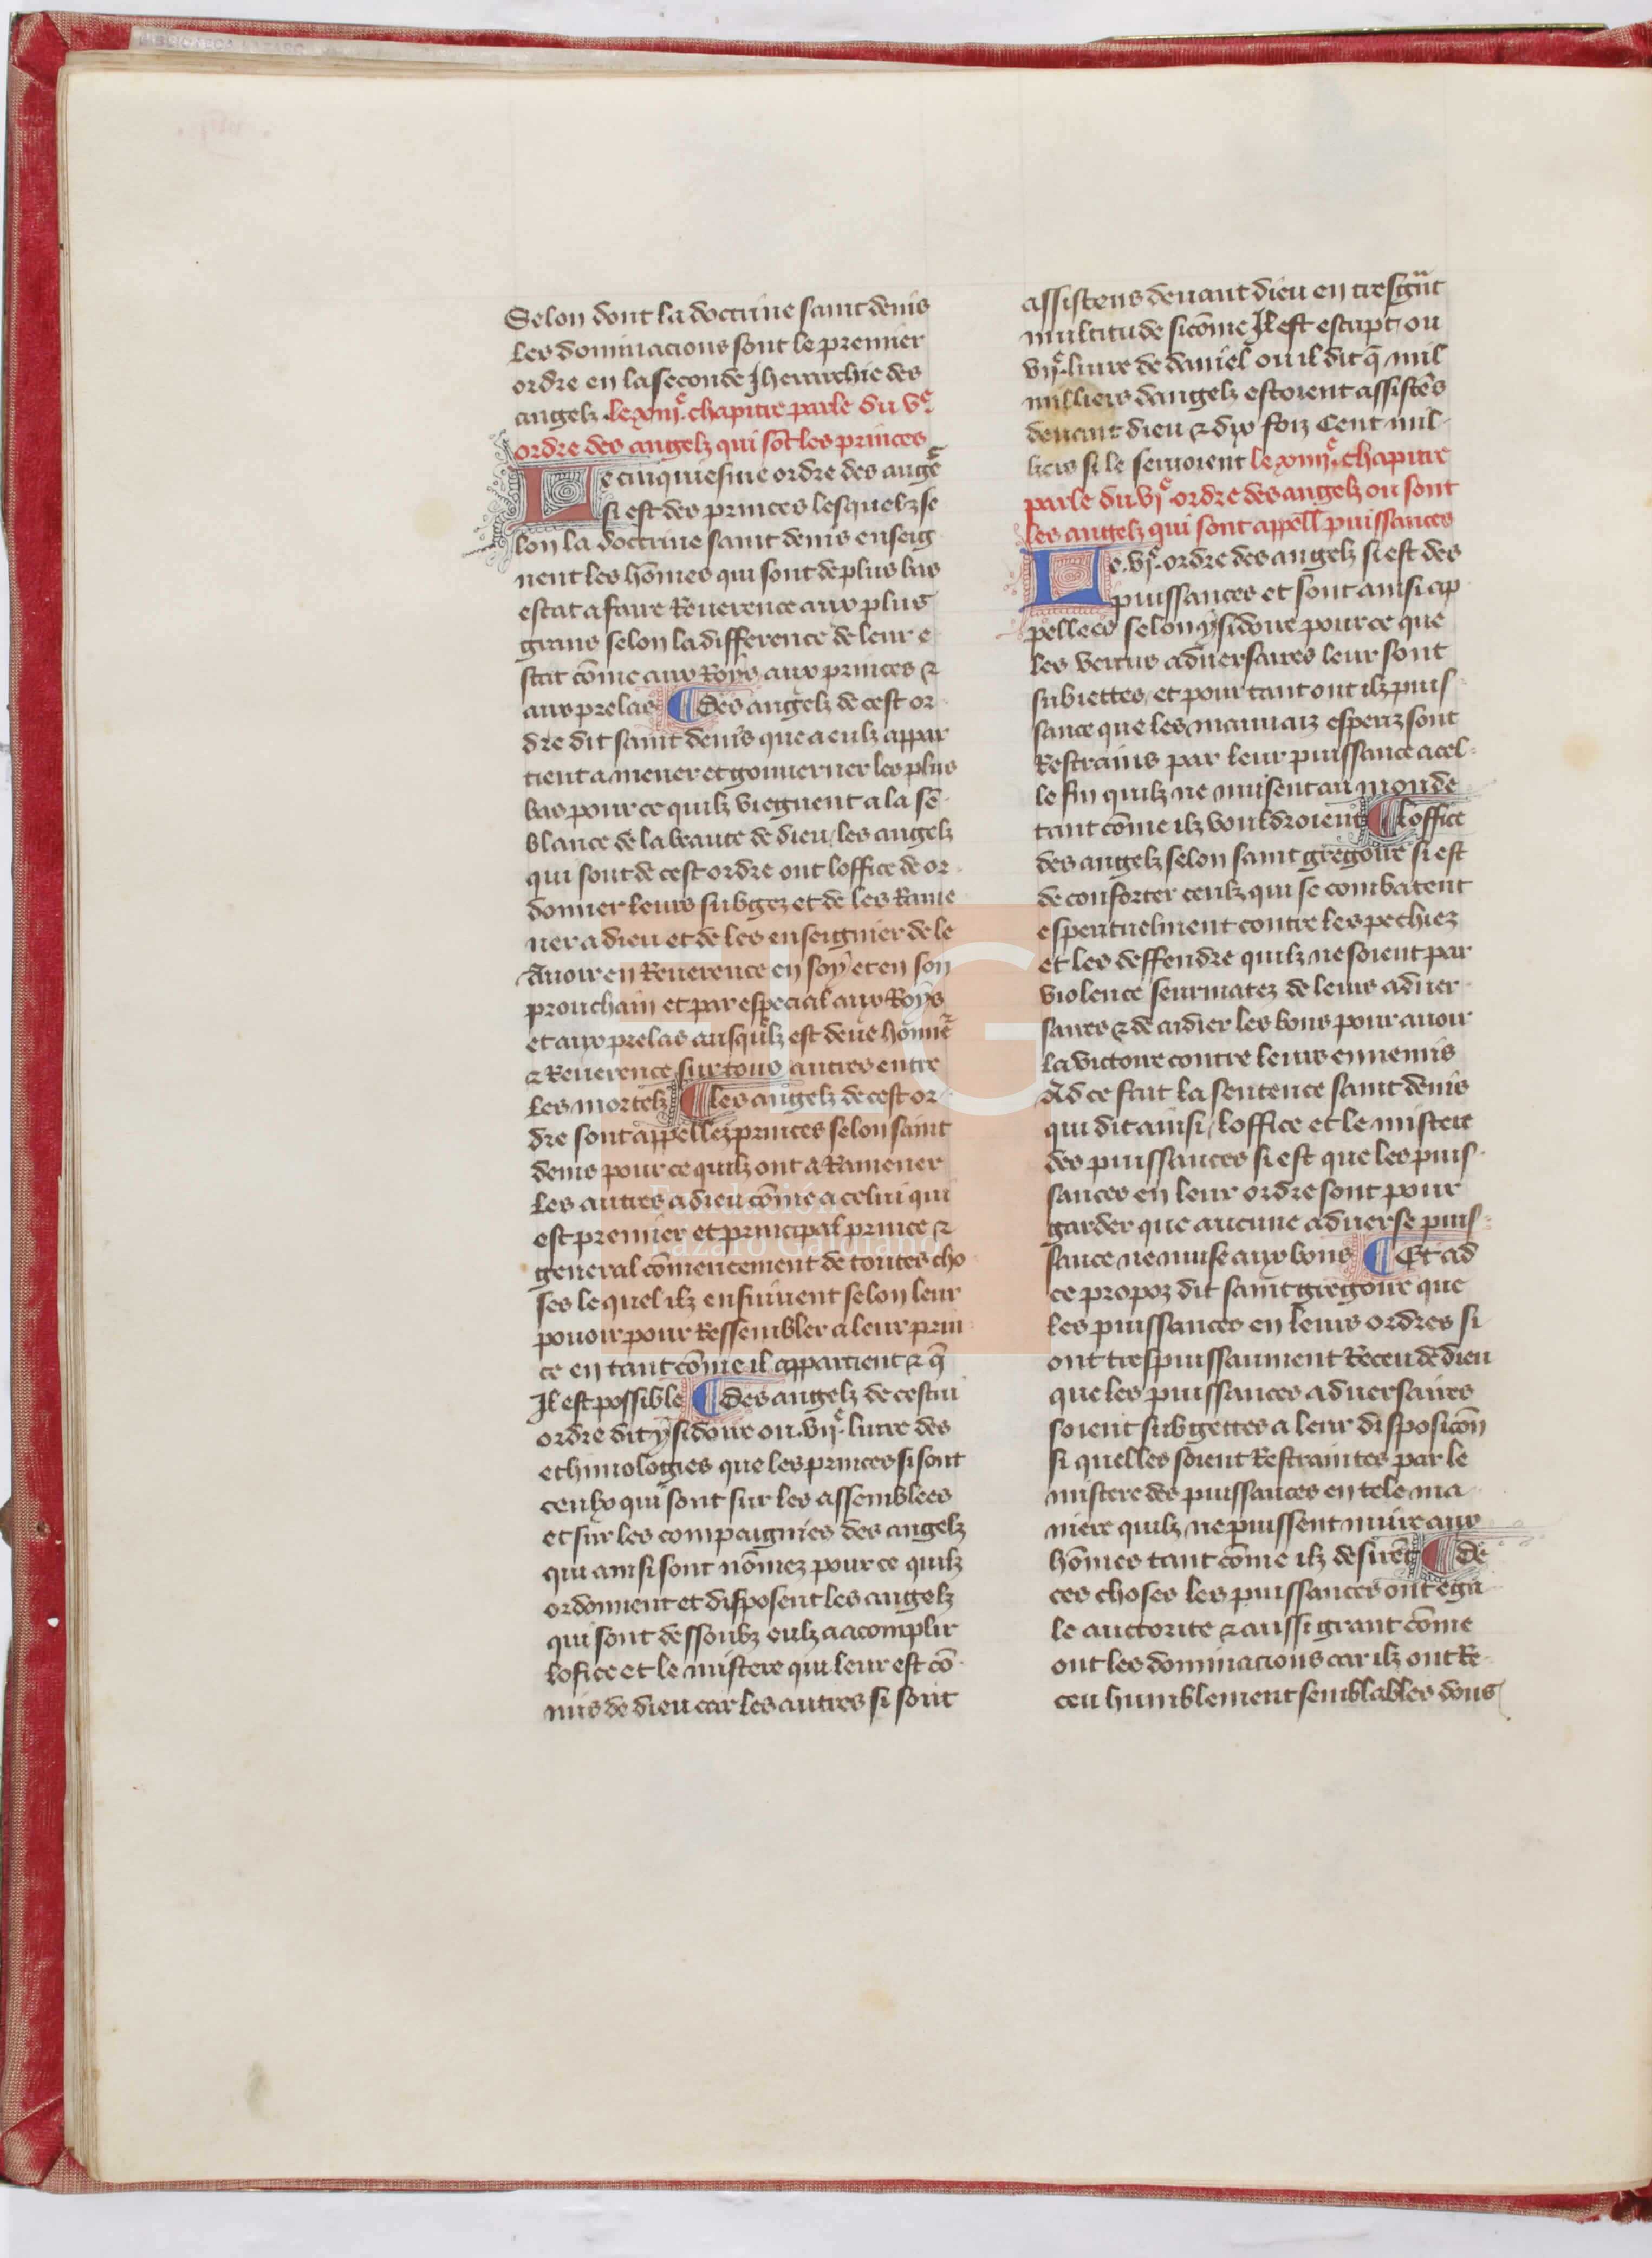 Selon dont la doctrine saint denis
les dominacions sont le premier
ordre en la seconde Jherarchie des
angelz . le xiij.e chapitre parle du v.e
ordre des angelz qui sõt les princes
Le cinquiesme ordre des ange
si est des princes lesquelz se
lon la doctrine saint denis enseig
nent les hõmes qui sont de plus bas
estat a faire Reuerence aux plus
grans selon la difference de leur e
stat cõme aux Roys aux princes ⁊
aux prelas ¶ Des angelz de cest or
dre dit saint denis que a eulz appar
tient a mener et gouuerner les plus
bas pour ce quilz viegnent a la sẽ
blance de la beaute de dieu / les angelz
qui sont de cest ordre ont loffice de or
donner leurs subgez et de les Rame
ner a dieu et de les enseignier de le
Auoir en Reuerence en soy et en son
prouchain et par especial aux Roys
et aux prelas ausqulz est deue hõnnr
⁊ Reuerence sur tous autres entre
les mortelz ¶ les angelz de cest or
dre sont appellez princes selon saint
denis pour ce quilz ont a Ramener
les autres a dieu cõme a celui qui
est premier et principal prince ⁊
general cõmencement de toutes cho
ses le quel ilz ensuiuent selon leur
pouoir pour Ressembler a leur prin
ce en tant cõme il appartient ⁊ q̃
Il est possible ¶ Des angelz de cestui
ordre dit ysidoire ou .vij.e liure des
ethimologies que les princes si sont
ceulx qui sont sur les assemblees
et sur les compaignies des angelz
qui ainsi sont nõmez pour ce quilz
ordonnent et disposent les angelz
qui sont dessoubz eulz a acomplir
lofice et le mistere qui leur est cõ
mis de dieu car les autres si sont
assistens deuant dieu en tresgñt
multitude sicõme Jl est escript ou
vij.e liure de daniel ou il dit q̃ mil
milliers dangelz estoient assistẽs
deuant dieu ⁊ dix foiz Cent mil
liers si le seruoient le xiiij.e chapitre
parle du vj.e ordre des angelz ou sont
les angelz qui sont appell puissances
Le .vj.e ordre des angelz si est des
puissances et sont ainsi ap
pellees selon ysidoire pour ce que
les vertus aduersaires leur sont
subiettes / et pour tant ont ilz puis
sance que les mauuaiz esperiz sont
Restrains par leur puissance a cel
le fin quilz ne nuisent au monde
tant cõme ilz vouldroient ¶ loffice
des angelz selon saint gregoire si est
de conforter ceulz qui se combatent
esperituelment contre les pechiez
et les deffendre quilz ne soient par
violence seurmatez de leurs aduer
saires ⁊ de aidier les bons pour auoir
la victoire contre leurs ennemis
Ad ce fait la sentence saint denis
qui dit ainsi / loffice et le mistere
des puissances si est que les puis
sances en leur ordre sont pour
garder que aucune aduerse puis
sance ne nuise aux bons ¶ Et ad
ce propoz dit saint gregoire que
les puissances en leurs ordres si
ont trespuissaument Receu de dieu
que les puissances aduersaires
soient subgettes a leur disposicõn
si quelles soient Restraintes par le
mistere des puissances en tele ma
niere quilz ne puissent nuire aux
hõmes tant cõme ilz desirẽt ¶ De
ces choses les puissances ont ega
le auctorite ⁊ aussi grant cõme
ont les dominacions car ilz ont Re
ceu humblement semblables dons
FLG
Fundación
Lázaro Galdiano